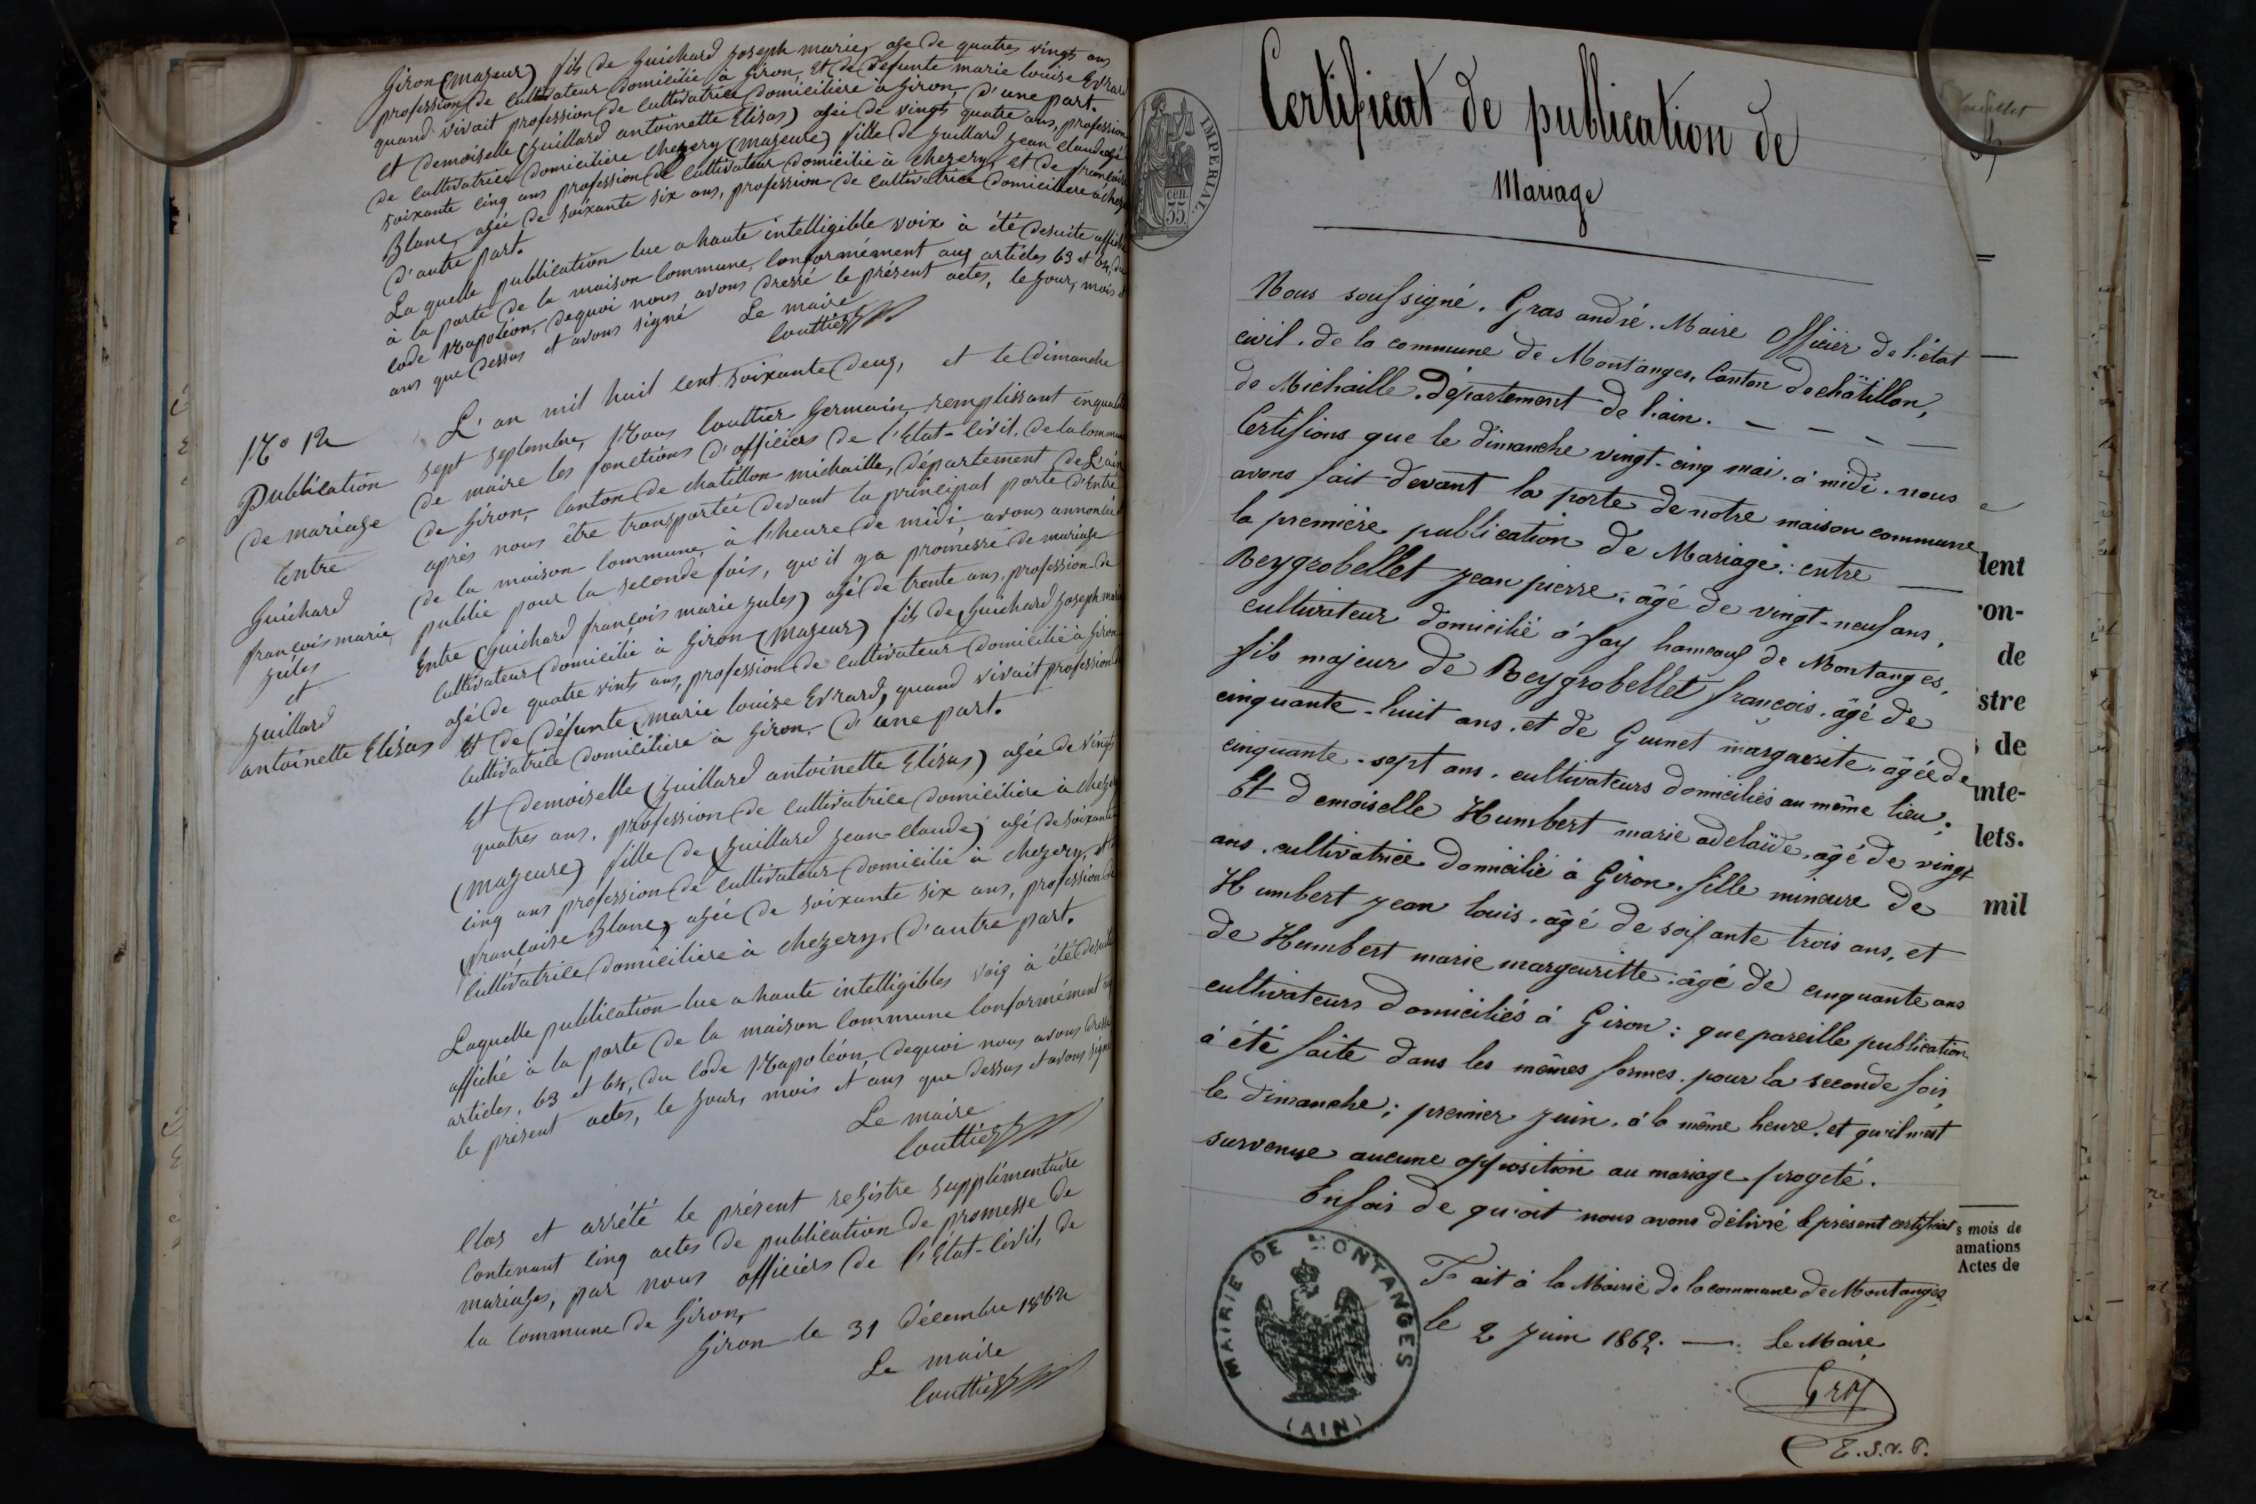 Giron (majeur) fils de Guichard Joseph marie, age de quatres vingts ans
profession de cultivateur domicilié à Giron, Et de défunte marie louise Evrard
quand vivait profession de cultivatrice domiciliere à Giron, d'une part.
et demoiselle (Juillard antoinette Elisas) agée de vingts quatre ans, profession
de cultivatrice domiciliere chezery (majeure) fille de Juillard Jean claude agé
soixante cinq ans profession de cultivateur domicilié à chezery, et de françoise
Blanc, agée de soixante six ans, profession de cultivatrice domiciliere à chez
d'autre part.
La quelle publication lue a haute intelligible voix à été desuite affiché
à la porte de la maison commune, conformément aux articles 63 et 64, du
code Napoléon, dequoi nous avons dressé le présent actes, le jour, mois et
ans que dessus et avons signé
Le maire
Couttier
N° 12
Publication
de mariage
Entre
Guichard
françois marie
jules
et
Juillard
antoinette Elisas
L'an mil huit cent soixante deux, et le dimanche
sept septembre, Nous Couttier Germain, remplissant enqualité
de maire les fonctions d'officiers de l'Etat-Civil, de la commune
de Giron, Canton de chatillon michaille, département de L'ain
après nous être transportée devant la principal porte d'Entré
de la maison commune, à l'heure de midi, avons annoncé
publié pour la seconde fois, qu'il y a promèsse de mariage
Entre (Guichard françois marie jules) agé de trente ans, profession de
cultivateur domicilié à Giron (majeur) fils de Guichard Joseph marie
agé de quatre vints ans, profession de cultivateur domicilié à Giron
et de défunte marie louise Evrard, quand vivait profession de
cultivatrice domiciliere à Giron, d'une part.
Et demoiselle (Juillard antoinette Elisas) agée de vingts
quatres ans, profession de cultivatrice domiciliere à chezery
(majeure) fille de (Juillard jean-claude) agé de soixante
cinq ans profession de cultivateur domicilié à chezery, et de
françoise Blanc, agée de soixante six ans, profession de
cultivatrice domiciliere à chezery, d'autre part.
Laquelle publication lue a haute intelligibles voix à été desuite
affiché à la porte de la maison commune conformément aux
articles, 63 et 64, du Code Napoléon, dequoi nous avons dressé
le présent actes, le jour, mois et ans que dessus et avons signé
Le maire
Couttier
Clos et arrêté le présent registre supplémentaire
Contenant cinq actes de publication de promesse de
mariages, par nous officiers de l'Etat-Civil, de
la Commune de Giron,
Giron le 31 décembre 1862
Le maire
Couttier
Certificat de publication de
Mariage
IMPERIAL
cen.
35
Nous soussigné. Gras andré. Maire Officier de l'état
civil. de la commune de Montanges, Canton de chatillon,
de Michaille. département de l'ain.
Certifions que le dimanche vingt-cinq mai. à midi. nous
avons fait devant la porte de notre maison commune
la première publication de Mariage: entre
Reygrobellet jean pierre. âgé de vingt-neuf ans.
cultivateur domicilié à fay hameaux de Montanges,
fils majeur de Reygrobellet françois. âgé de
cinquante-huit ans. et de Guinet margaerite. âgée de
cinquante-sept ans. cultivateurs domiciliés au même lieu;
Et demoiselle Humbert marie adelaïde, âgé de vingt
ans. cultivatrice domicilié à Giron. fille mineure de
Humbert jean louis. âgé de soisante trois ans, et
de Humbert marie margeuritte. âgé de cinquante ans
cultivateurs domiciliés à Giron: que pareille publication
à été faite dans les mêmes formes. pour la seconde fois,
le dimanche; premier juin. à la même heure. et qu'il n'est
survenue aucune opposition au mariage progeté.
En fois de qu'oit nous avons délivré le présent certificat
Fait à la Mairie de la commune de Montanges,
le 2 juin 1862. Le Maire
Gras
T.S.V.P.
MAIRIE DE MONTANGES
(AIN)
lent
on-
de
stre
de
inte-
lets.
mil
s mois de
amations
Actes de